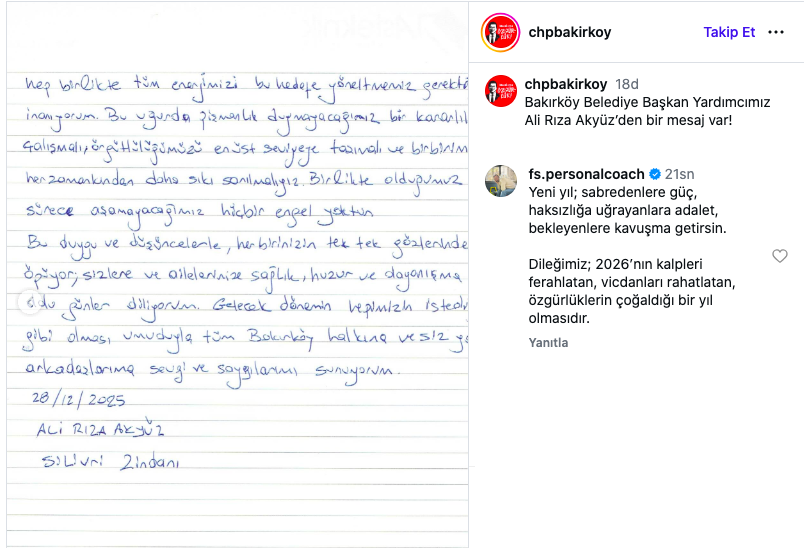 hep birlikte tüm enerjimizi bu hedefe yöneltmemiz gerekti
inanıyorum. Bu uğurda pişmanlık duymayacağımız bir kararlıl
çalışmalı, örgütlülüğümüzü en üst seviyeye taşımalı ve birbirim
her zamankinden daha sıkı sarılmalıyız. Birlikte olduğumuz
sürece aşamayacağımız hiçbir engel yoktur.
Bu duygu ve düşüncelerle, her birinizin tek tek gözlerinde
öpüyor; sizlere ve ailelerinize sağlık, huzur ve dayanışma
dolu günler diliyorum. Gelecek dönemin hepimizin istedi
gibi olması umuduyla tüm Bakırköy halkına ve siz
arkadaşlarıma sevgi ve saygılarımı sunuyorum.
28/12/2025
ALİ RIZA AKYÜZ
SİLİVRİ Zindanı
chpbakirkoy
Takip Et
chpbakirkoy 18d
Bakırköy Belediye Başkan Yardımcımız
Ali Rıza Akyüz’den bir mesaj var!
fs.personalcoach 21sn
Yeni yıl; sabredenlere güç,
haksızlığa uğrayanlara adalet,
bekleyenlere kavuşma getirsin.
Dileğimiz; 2026’nın kalpleri
ferahlatan, vicdanları rahatlatan,
özgürlüklerin çoğaldığı bir yıl
olmasıdır.
Yanıtla